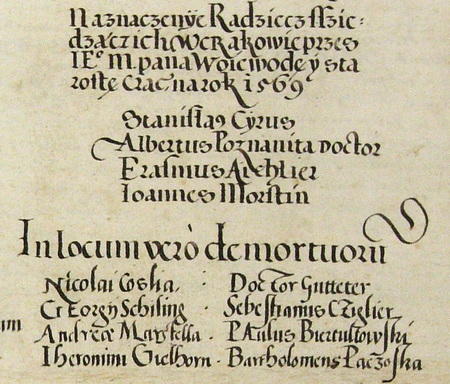 Naznaczenÿe Radziecz sſzie-
dzączich w Crakowie przes
IEº M. pana Woiewodę ÿ sta
rostę Crac na rok 1569
Stanislaꝰ Cÿrus
Albertus Poznanita Doctor
Erasmus Aichlier
Ioannes Morstin
In locum verò demortuorū
Nicolai Coslia. Doctor Gutteter
GEorgÿ Schiling · Sebestianus CZiglier
Andreæ Marstella · PAulus Biertultowski
Iheronimi Gielhorn · Bartholomeus Paczoska